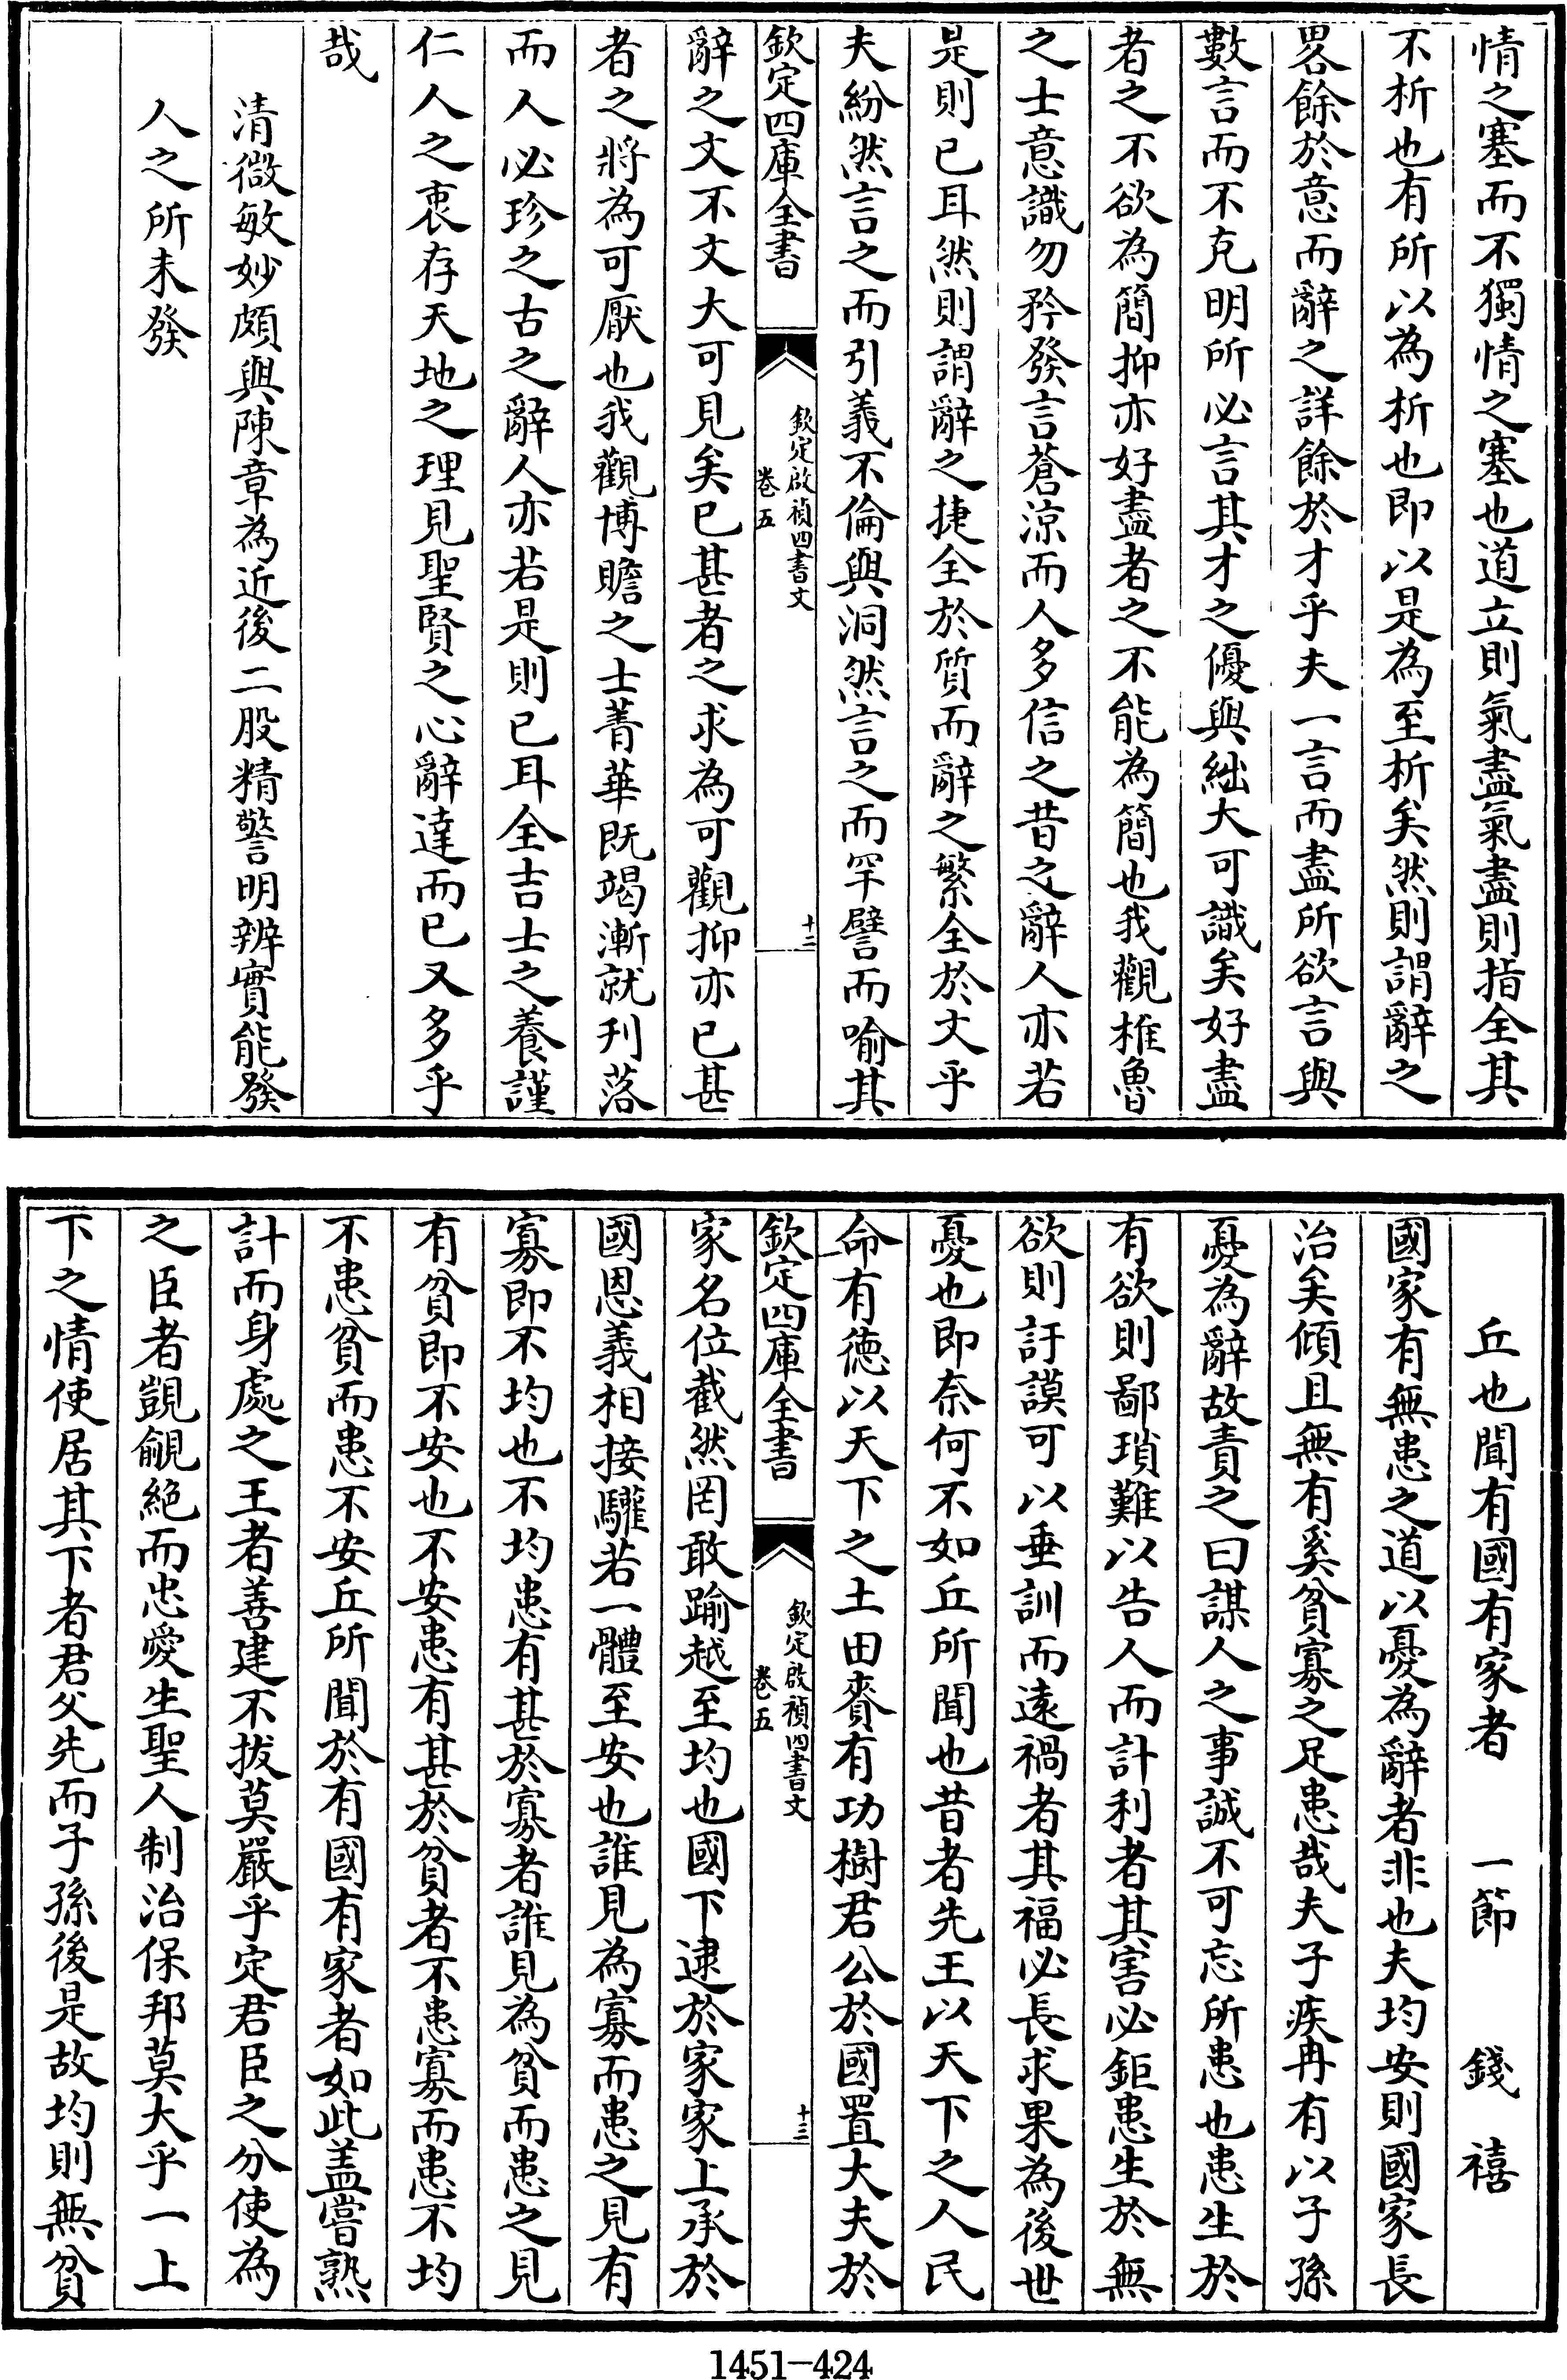 情之塞而不獨情之塞也道立則氣盡氣盡則指全其
不析也有所以為析也即以是為至析矣然則謂辭之
畧餘於意而辭之詳餘於才乎夫一言而盡所欲言與
數言而不克明所必言其才之優與絀大可識矣好盡
者之不欲為簡抑亦好盡者之不能為簡也我觀椎魯
之士意識勿矜發言蒼涼而人多信之昔之辭人亦若
是則已耳然則謂辭之捷全於質而辭之繁全於文乎
夫紛然言之而引義不倫與洞然言之而罕譬而喻其
欽定四庫全書
欽定啟禎四書文
卷五
十二
辭之文不文大可見矣已甚者之求為可觀抑亦已甚
者之將為可厭也我觀博贍之士菁華既竭漸就刋落
而人必珍之古之辭人亦若是則已耳全吉士之養謹
仁人之衷存天地之理見聖賢之心辭達而已又多乎
哉
清微敏妙頗與陳章為近後二股精警明辨實能發
人之所未發
丘也聞有國有家者 一節 錢禧
國家有無患之道以憂為辭者非也夫均安則國家長
治矣傾且無有奚貧寡之足患哉夫子疾冉有以子孫
憂為辭故責之曰謀人之事誠不可忘所患也患生於
有欲則鄙瑣難以告人而計利者其害必鉅患生於無
欲則訏謨可以垂訓而遠禍者其福必長求果為後世
憂也即奈何不如丘所聞也昔者先王以天下之人民
命有德以天下之土田賚有功樹君公於國置大夫於
欽定四庫全書
欽定啟禎四書文
卷五
十三
家名位截然罔敢踰越至均也國下逮於家家上承於
國恩義相接驩若一體至安也誰見為寡而患之見有
寡即不均也不均患有甚於寡者誰見為貧而患之見
有貧即不安也不安患有甚於貧者不患寡而患不均
不患貧而患不安丘所聞於有國有家者如此盖嘗熟
計而身處之王者善建不拔莫嚴乎定君臣之分使為
之臣者覬覦絕而忠愛生聖人制治保邦莫大乎一上
下之情使居其下者君父先而子孫後是故均則無貧
1451-424